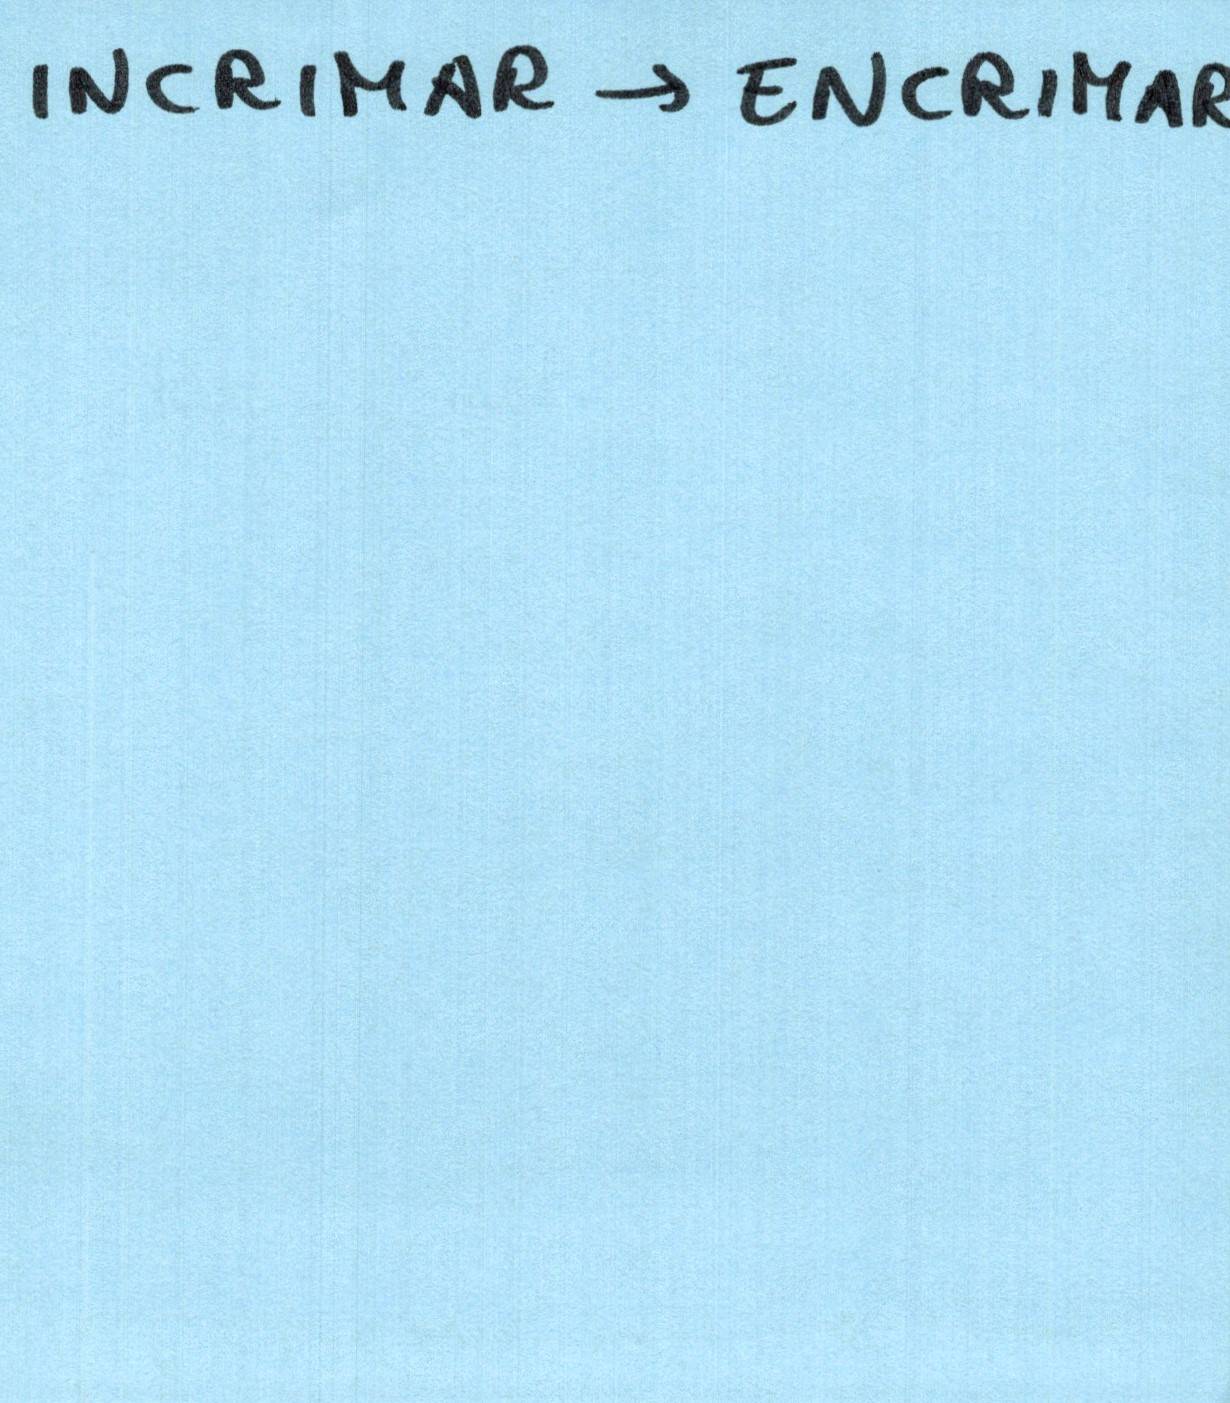 INCRIMAR → ENCRIMAR